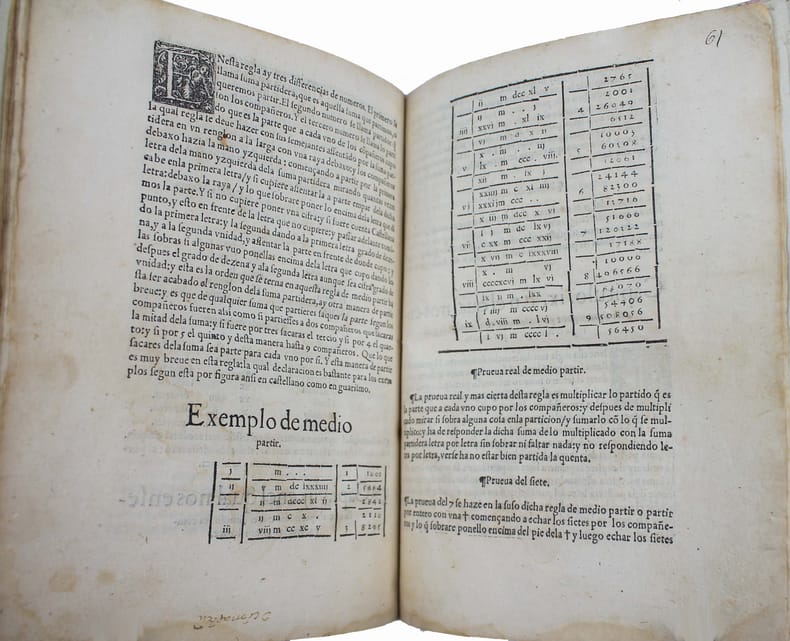 ENesta regla ay tres differencias de numeros. El primero se
llama suma partidera, que es aquella suma que
queremos partir. El segundo numero se llama partidor q̄
son los compañeros. Y el tercero numero se llama
do que es la parte que a cada vno de los
la qual regla se deue hazer con sus semejantes assentando la suma par
tidera en vn renglon a la larga con vna raya debaxo: y los compañeros
debaxo hazia la mano yzquierda: començando a partir por la primera
letra de la mano yzquierda dela suma partidera mirando quantas vezes
cabe enla primera letra/y si cupiere assentar la a parte
letra: debaxo la raya/ y lo que sobrare poner lo encima dela letra
mos la parte. Y si no cupiere poner vna cifra: y si fuere cuenta Castellana
punto, y esto en frente de la letra que no cupiere: y passar adelante
do la primera letra: y la segunda dando a la primera letra grado de deze
na, y a la segunda vnidad, y assentar la parte en frente de donde cupo: y
las sobras si algunas vuo ponellas encima dela letra que cupo dando les
despues el grado de dezena y ala segunda letra aunque sea cifra grado de
vnidad: y esta es la orden que se terna en aquesta regla de medio partir ha
sta ser acabado el renglon dela suma partidera, ay otra manera de partir
breue: y es que de qualquier suma que partieres saques la parte segun los
compañeros fueren assi como si partiesses a dos compañeros que sacaras
la mitad dela suma: y si fuere por tres sacaras el tercio y si por 4 el quar-
to: y si por 5 el quinto y desta manera hasta 9 compañeros. Que lo que
sacares dela suma sea parte para cada vno por si. Y esta manera de partir
es muy breue en esta regla: la qual declaracion es bastante para los exem
plos segun esta por figura ansi en castellano como en guarismo.
Exemplo de medio
partir.
j m . . . 1 1000
ij v m dc lxxxiiij 2 5684
ij m dccc xl ij 2842
ij m c x . 2110
iij viij m cc xc v 3 8295
61
ij m dcc xl v 2765
ij m . . j 2001
iiij xxvj m . xl ix 4 26049
vj m d x ij 6512
x . m . . iij 10003
v lx m ccc . viij. 5 60308
xij m . lx j 12061
xxiiij m c xl iiij 24144
vj xxxij m ccc . . 6 82300
x iij m dcc x vj 13716
lj m dc lx vj 51666
vij c xx m ccc xxij 7 120322
x vij m c lxxxviij 17188
x . m . vj 10006
viij ccccxcvj m d lx vj 8 496566
lx ij m . lxx 62070
l iiij m cccc vj 54406
ix d. viij m . l vj 9 508056
l vj m cccc l . 56450
¶Prueua real de medio partir.
¶La prueua real y mas cierta desta regla es multiplicar lo partido q̄ es
la parte que a cada vno cupo por los compañeros: y despues de multipli
cado mirar si sobra alguna cosa enla particion/y sumarlo cō lo q̄ se mul-
tiplico: y ha de responder la dicha suma de lo multiplicado con la suma
partidera letra por letra sin sobrar ni faltar nada: y no respondiendo le-
tra por letra, verse ha no estar bien partida la quenta.
¶Prueua del siete.
¶La prueua del 7 se haze en la suso dicha regla de medio partir o partir
por entero con vna † començando a echar los sietes por los compañe-
ros y lo q̄ sobrare ponello encima del pie dela † y luego echar los sietes